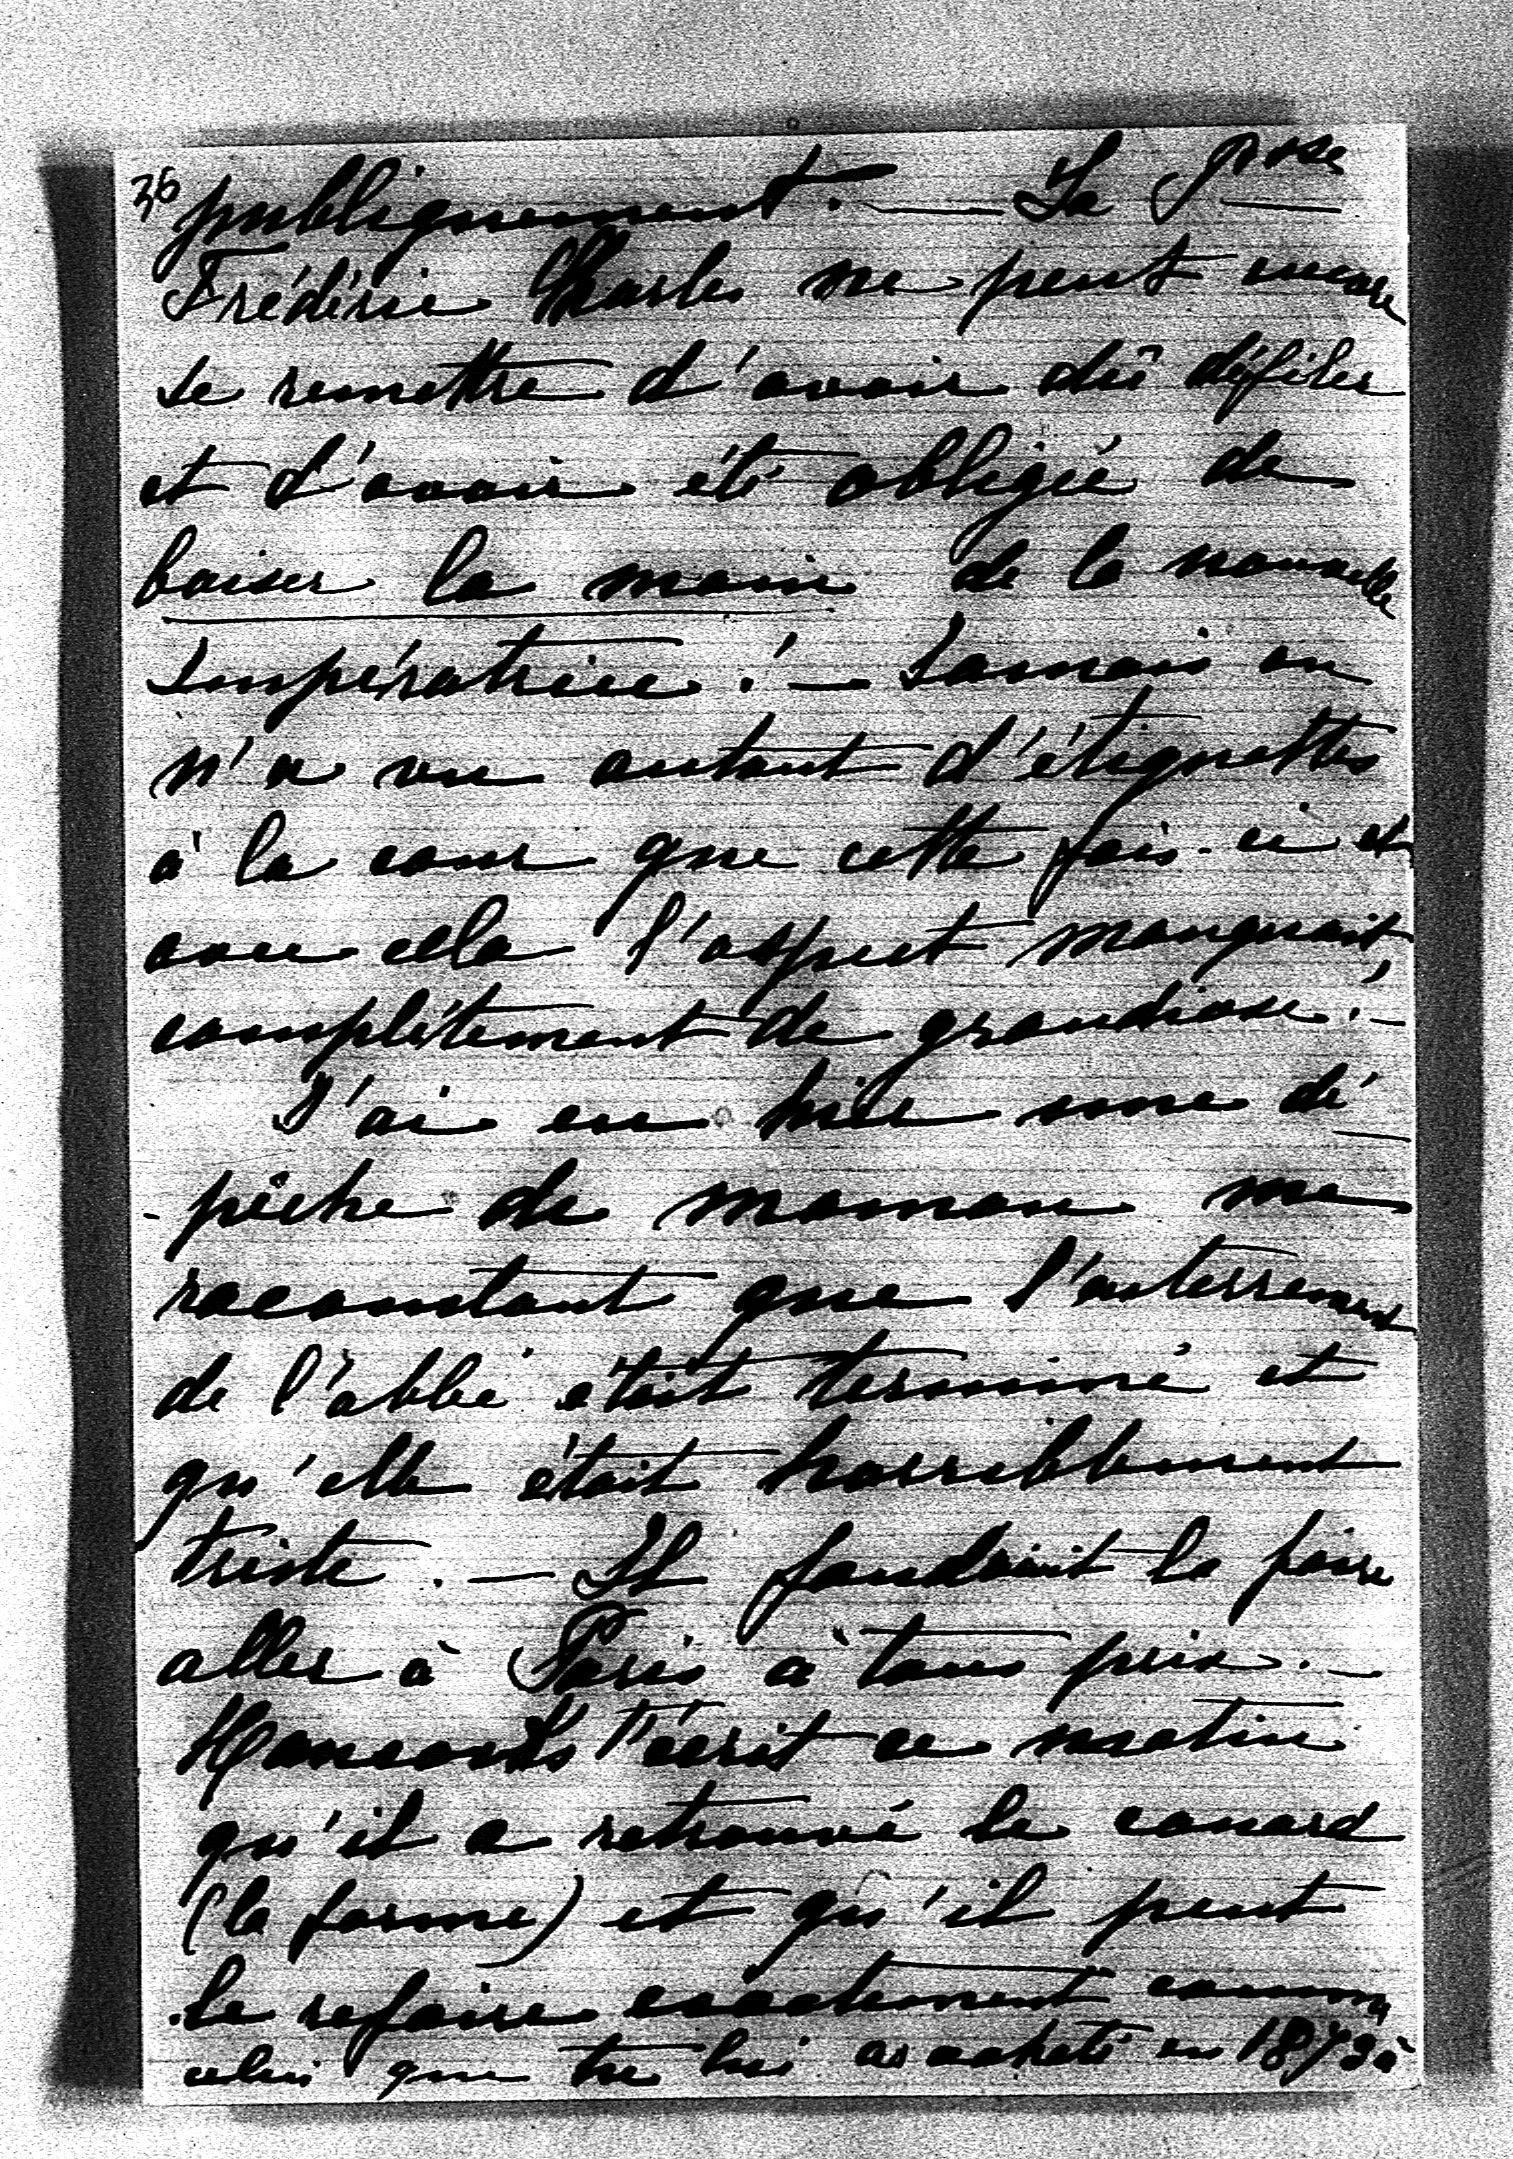 36 publiquement. — La Psse
Frédéric Charles ne peut encore
se remettre d'avoir dû défiler
et d'avoir été obligée de
baiser la main de la nouvelle
Impératrice! — Jamais on
n'a vu autant d'étiquettes
à la cour que cette fois-ci et
avec cela l'aspect manquait
complètement de grandiose! —
J'ai eu hier une dé-
pêche de maman me
racontant que l'enterrement
de l'abbé était terminé et
qu'elle était horriblement
triste. — Il faudrait la faire
aller à Paris à tous prix. —
t'écrit ce matin
qu'il a retrouvé le canard
(la forme) et qu'il peut
le refaire exactement comme
celui que tu lui as acheté en 1873 à